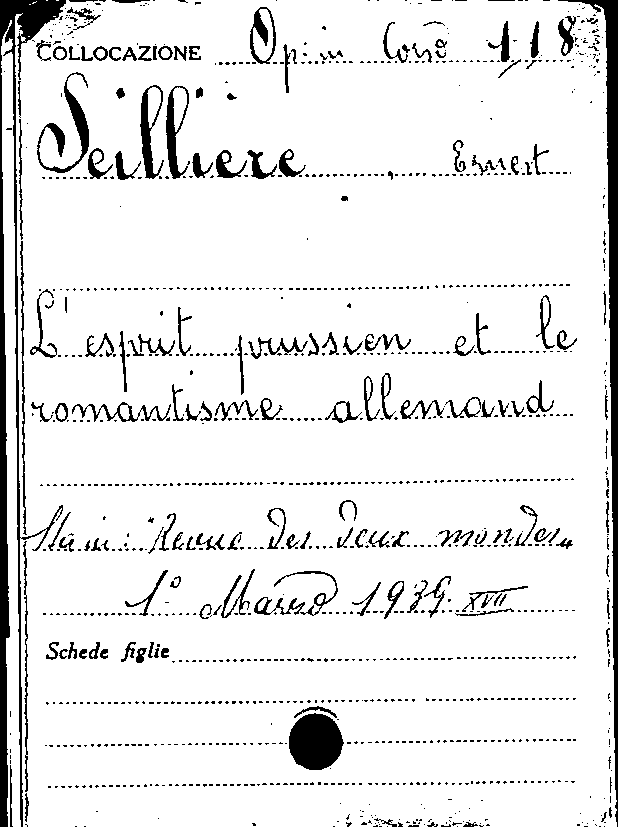 COLLOCAZIONE Opin Corso 118
Seillière, Ernest
L'esprit prussien et le
romantisme allemand
Sta in: "Revue des deux mondes„
1° Marzo 1939. XVII
Schede figlie